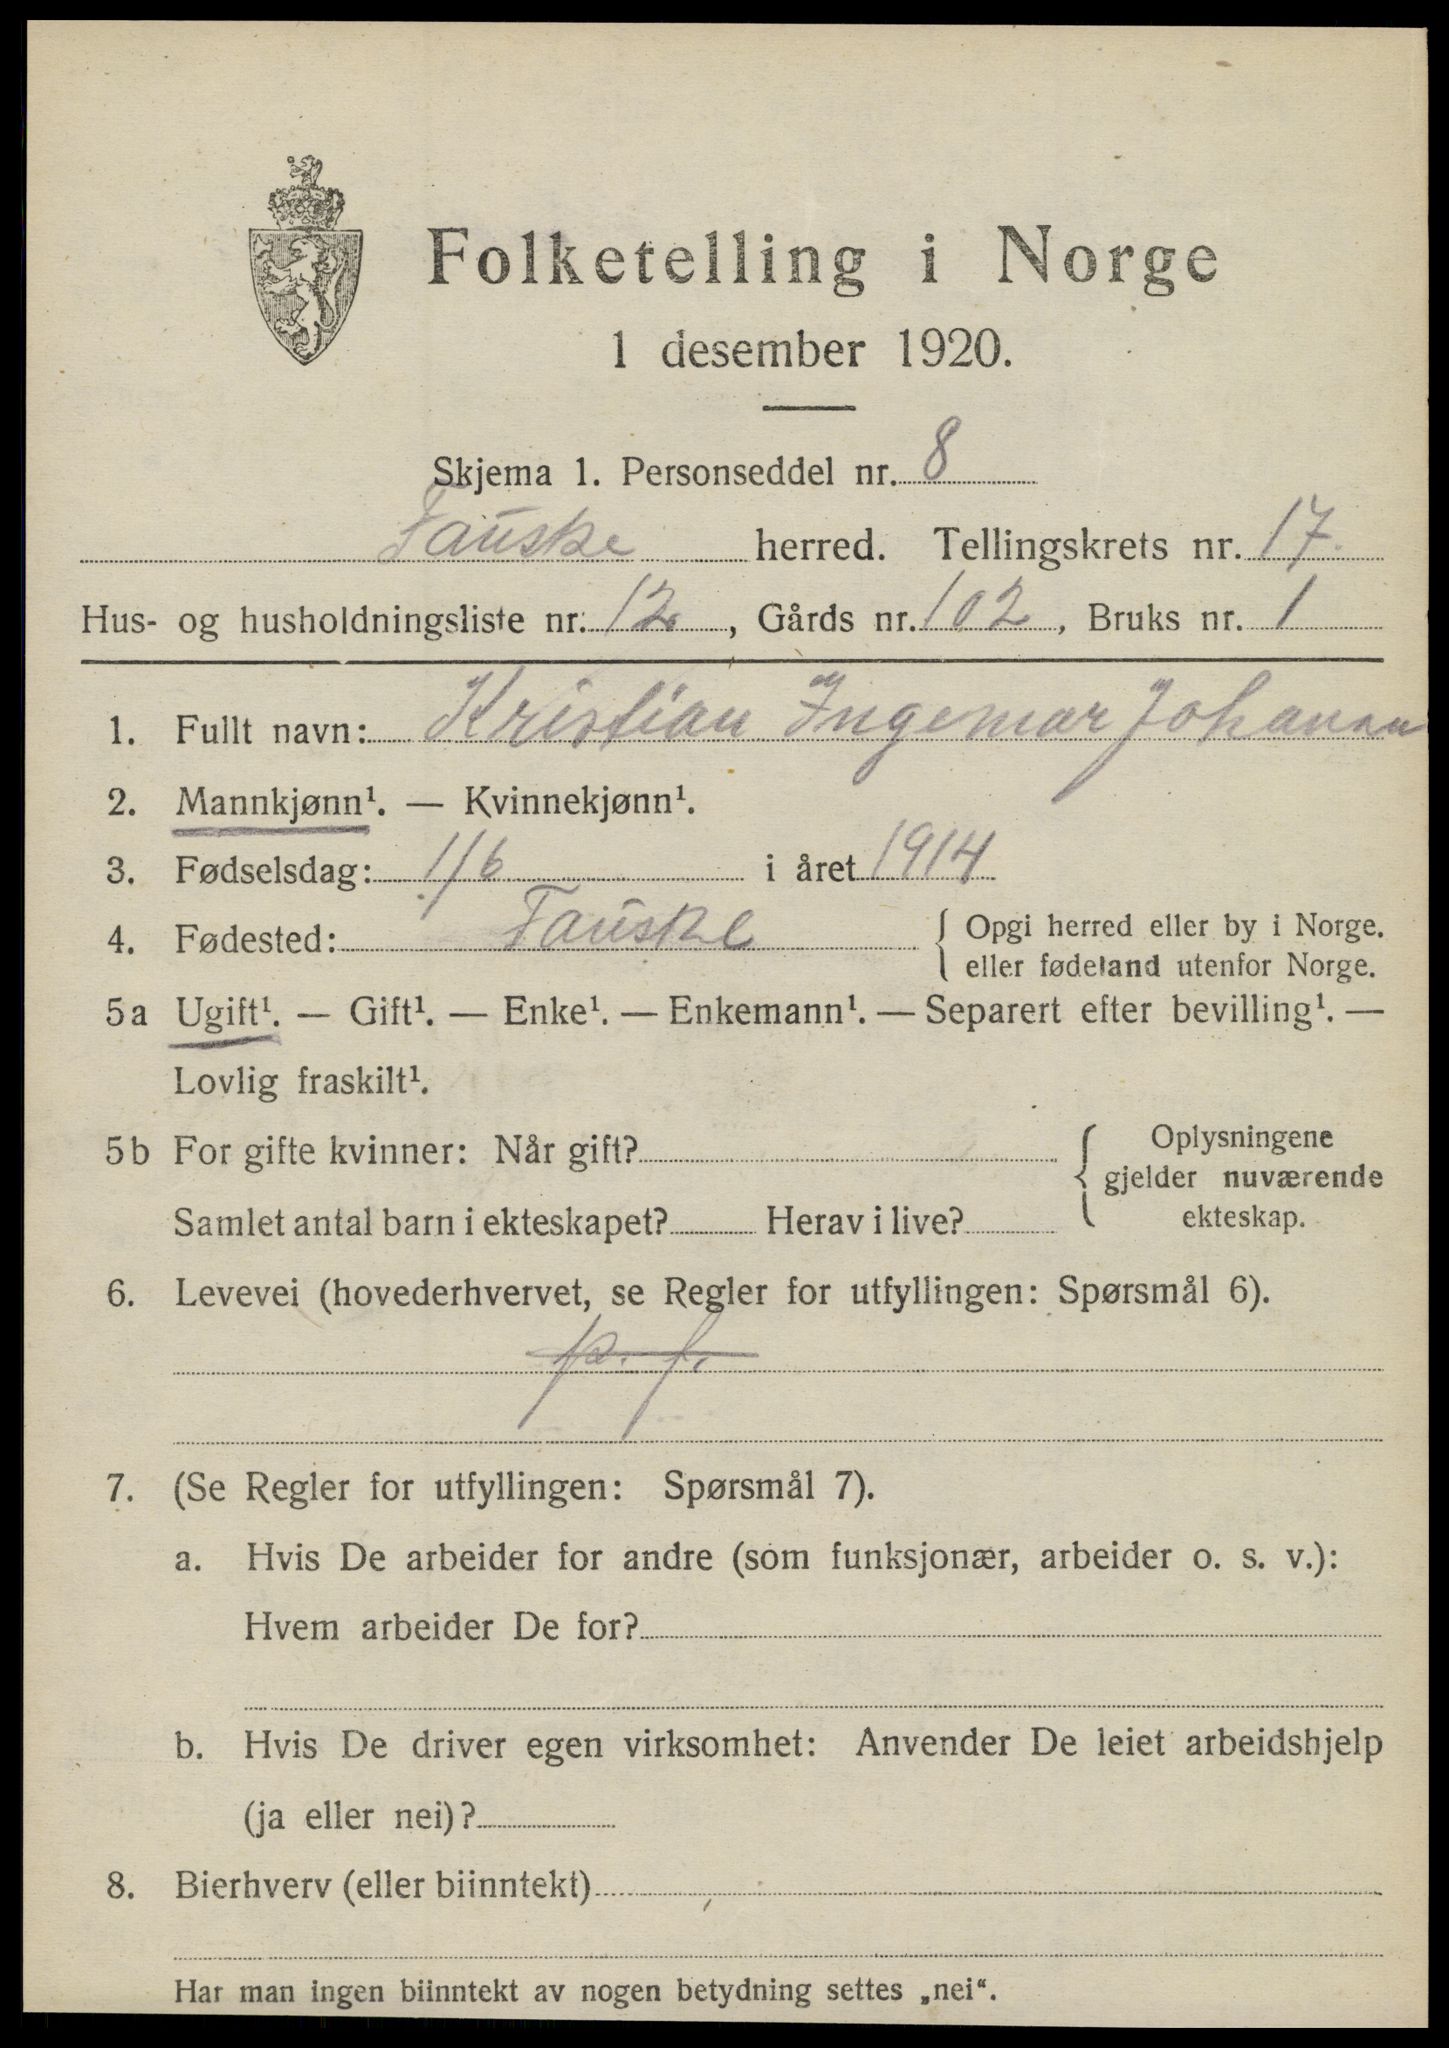 Folketelling i Norge
1 desember 1920.
Skjema 1. Personseddel nr. 8
Fauske herred. Tellingskrets nr. 17.
Hus- og husholdningsliste nr. 12, Gårds nr. 102, Bruks nr. 1
1. Fullt navn: Kristian Ingemar Johansen
2. Mannkjønn¹. — Kvinnekjønn¹.
3. Fødselsdag: 1/6 i året 1914
4. Fødested: Fauske { Opgi herred eller by i Norge.
eller fødeland utenfor Norge.
5a Ugift¹. — Gift¹. — Enke¹. — Enkemann¹. — Separert efter bevilling¹. —
Lovlig fraskilt¹.
5b For gifte kvinner: Når gift? { Oplysningene
gjelder nuværende
Samlet antal barn i ekteskapet? Herav i live? ekteskap.
6. Levevei (hovederhvervet, se Regler for utfyllingen: Spørsmål 6).
p. f.
7. (Se Regler for utfyllingen: Spørsmål 7).
a. Hvis De arbeider for andre (som funksjonær, arbeider o. s. v.):
Hvem arbeider De for?
b. Hvis De driver egen virksomhet: Anvender De leiet arbeidshjelp
(ja eller nei)?
8. Bierhverv (eller biinntekt)
Har man ingen biinntekt av nogen betydning settes „nei“.